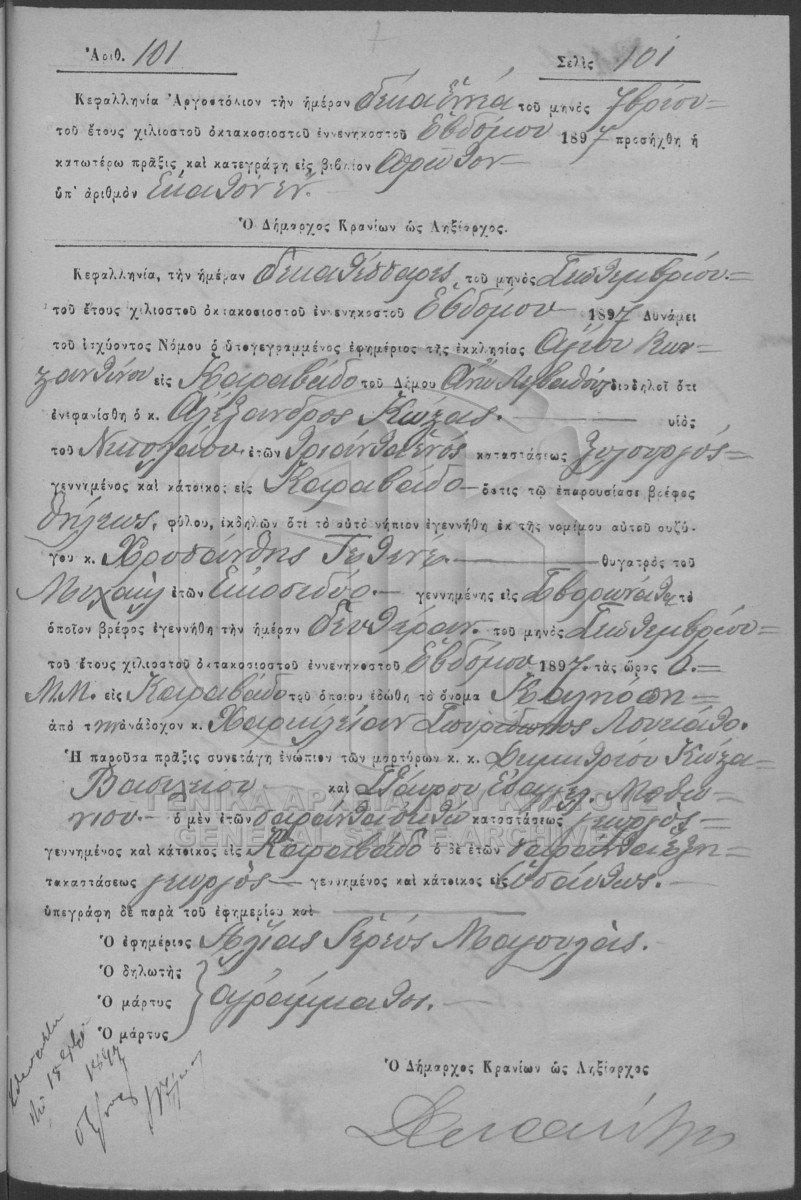 Ἀριθ. 101
Σελὶς 101
Κεφαλληνία Ἀργοστόλιον τὴν ἡμέραν δέκα ἐννέα τοῦ μηνὸς 7βρίου
τοῦ ἔτους χιλιοστοῦ ὀκτακοσιοστοῦ ἐννενηκοστοῦ Ἑβδόμου 1897 προσήχθη ἡ
κατωτέρω πρᾶξις καὶ κατεγράφη εἰς βιβλίον πρῶτον
ὑπ' ἀριθμὸν Ἑκατὸν ἕν.
Ὁ Δήμαρχος Κρανίων ὡς Ληξίαρχος.
Κεφαλληνία, τὴν ἡμέραν δεκατέσσαρες τοῦ μηνὸς Σεπτεμβρίου
τοῦ ἔτους χιλιοστοῦ ὀκτακοσιοστοῦ ἐννενηκοστοῦ Ἑβδόμου 1897 Δυνάμει
τοῦ ἰσχύοντος Νόμου ὁ ὑπογεγραμμένος ἐφημέριος τῆς ἐκκλησίας Ἁγίου Κων-
σταντίνου εἰς Καραβάδο τοῦ Δήμου Ἄνω Λειβαθοῦς διαδηλοῖ ὅτι
ἐνεφανίσθη ὁ κ. Ἀλέξανδρος Κώζας. υἱὸς
τοῦ Νικολάου ἐτῶν τριάντα ἑνὸς καταστάσεως ξυλουργὸς
γεννημένος καὶ κάτοικος εἰς Καραβάδο ὅστις τῷ ἐπαρουσίασε βρέφος
θήλεως, φύλου, ἐκδηλῶν ὅτι τὸ αὐτὸ νήπιον ἐγεννήθη ἐκ τῆς νομίμου αὐτοῦ συζύ-
γου κ. Χρυσάνθης θυγατρὸς τοῦ
Μιχαὴλ ἐτῶν Εἰκοσιδύο. γεννημένης εἰς Σβορωνάτα τὸ
ὁποῖον βρέφος ἐγεννήθη τὴν ἡμέραν δευτέραν. τοῦ μηνὸς Σεπτεμβρίου
τοῦ ἔτους χιλιοστοῦ ὀκτακοσιοστοῦ ἐννενηκοστοῦ Ἑβδόμου 1897. τὰς ὥρας
Μ.Μ. εἰς Καραβάδο τοῦ ὁποίου ἐδώθη τὸ ὄνομα Καλλιόπη
ἀπὸ τὴν ἀνάδοχον κ. Χαρίκλειαν Λουκάτο.
Ἡ παροῦσα πρᾶξις συνετάγη ἐνώπιον τῶν μαρτύρων κ. κ. Δημητρίου Κώζα
Βασιλείου καὶ Σταύρου Εὐαγγελ.
ὁ μὲν ἐτῶν σαράντα ὀκτὼ καταστάσεως γεωργὸς
γεννημένος καὶ κάτοικος εἰς Καραβάδο ὁ δὲ ἐτῶν σαράντα ἕξη
τακαστάσεως γεωργὸς γεννημένος καὶ κάτοικος εἰς ὡσαύτως.
ὑπεγράφη δὲ παρὰ τοῦ ἐφημερίου καὶ
Ὁ ἐφημέριος Ἠλίας Ἱερεὺς Μαγουλᾶς.
Ὁ δηλωτὴς
Ὁ μάρτυς ἀγράμματος.
Ὁ μάρτυς
Ὁ Δήμαρχος Κρανίων ὡς Ληξίαρχος
ΓΕΝΙΚΑ ΑΡΧΕΙΑ ΤΟΥ ΚΡΑΤΟΥΣ
GENERAL STATE ARCHIVES